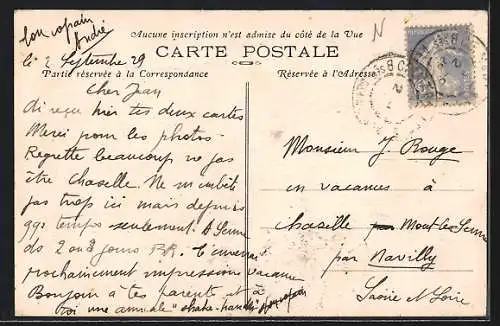 ton copain
André
Aucune inscription n'est admise du côté de la Vue
CARTE POSTALE
le 2 Septembre 29
Partie réservée à la Correspondance
Réservée à l'Adresse
Cher Jean
ai reçu hier tes deux cartes
Merci pour les photos -
Regrette beaucoup ne pas
être Chaselle. Ne m'embête
pas trop ici mais depuis
qq temps seulement. A
de 2 ou 3 jours
prochainement impressions vacances
Bonjour à tes parents et à
toi une amicale "shake-hands"
Monsieur J. Rouge
en vacances à
Chaselle par Mont-les-Seurre
par Navilly
Saône et Loire